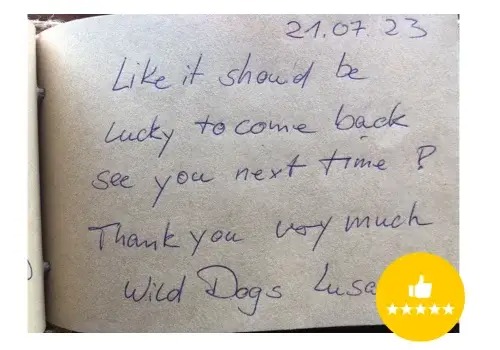 21.07.23
Like it should be
lucky to come back
see you next time ?
Thank you very much
Wild Dogs